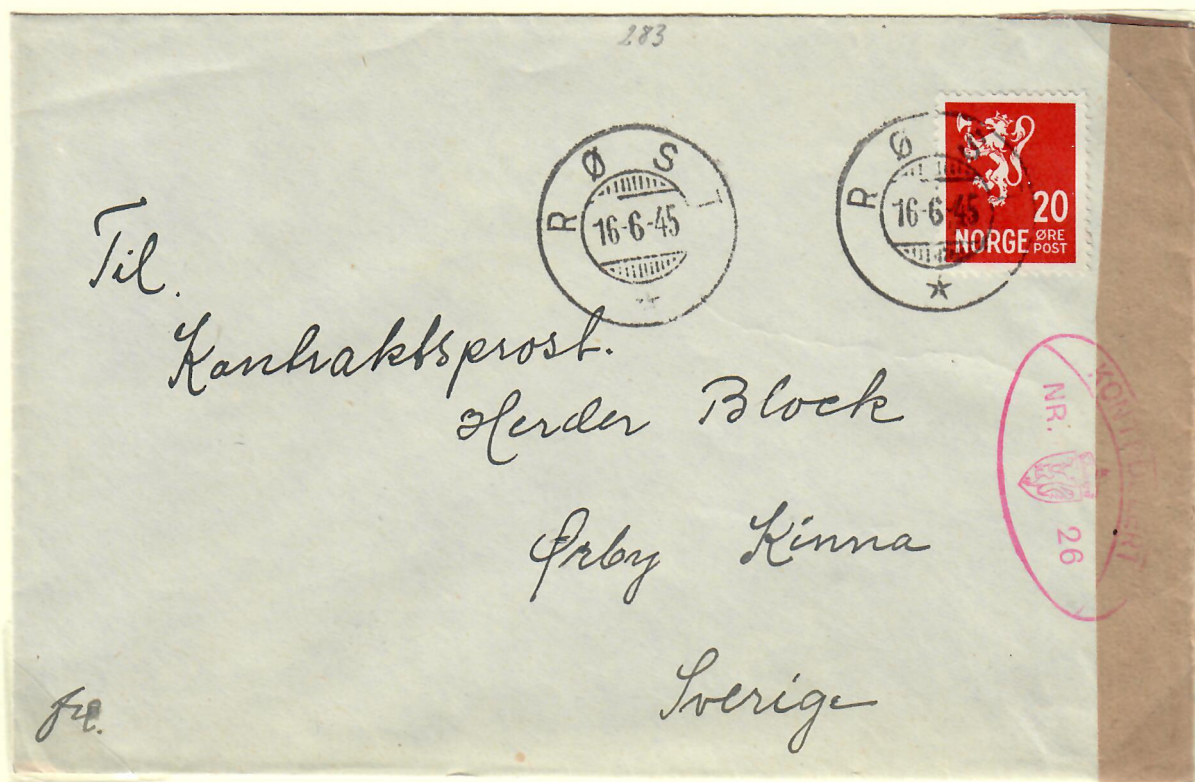 283
RØST
16-6-45
RØST
16-6-45
20
NORGE ØRE POST
Til.
Kontraktsprost.
Herder Block
Ørby Kinna
Sverige
KONTROLLERT
NR. 26